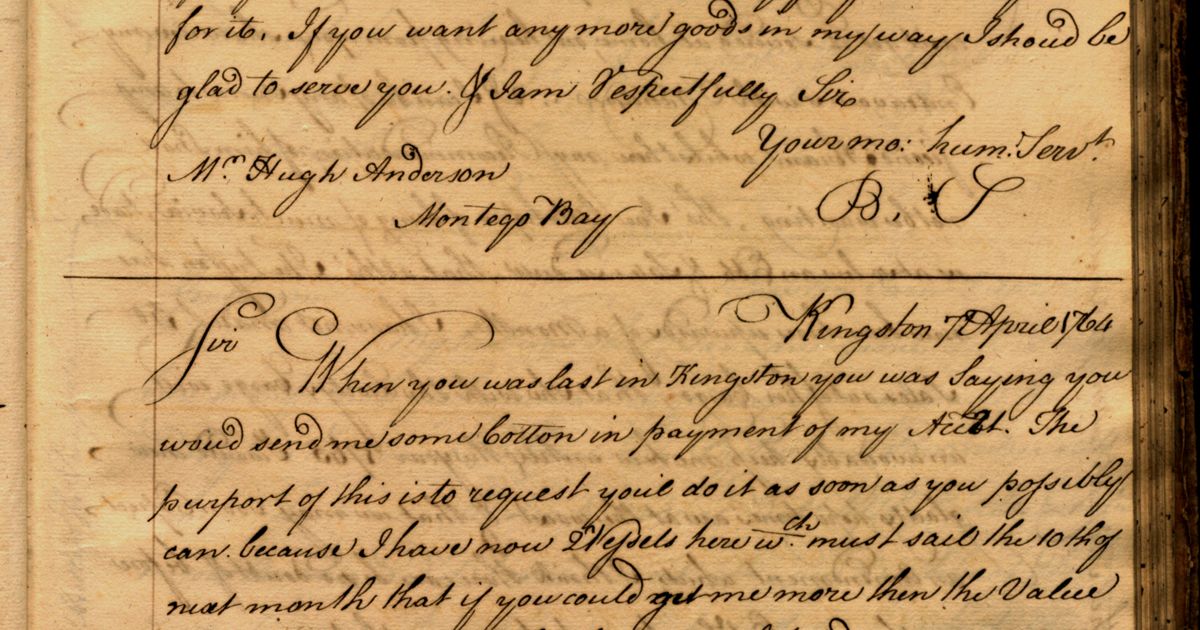 for it, If you want any more goods in my way I shoud be
glad to serve you. & I am Respectfully Sir
Your mo: hum: Servt.
Mr. Hugh Anderson
Montego Bay
B. S
Kingston 7 April 1764
Sir
When you was last in Kingston you was Saying you
woud send me some Cotton in payment of my Acct. The
purport of this is to request youl do it as soon as you possibly
can. because I have now 2 Vessels here wch. must sail the 10th of
next month that if you could get me more then the Value